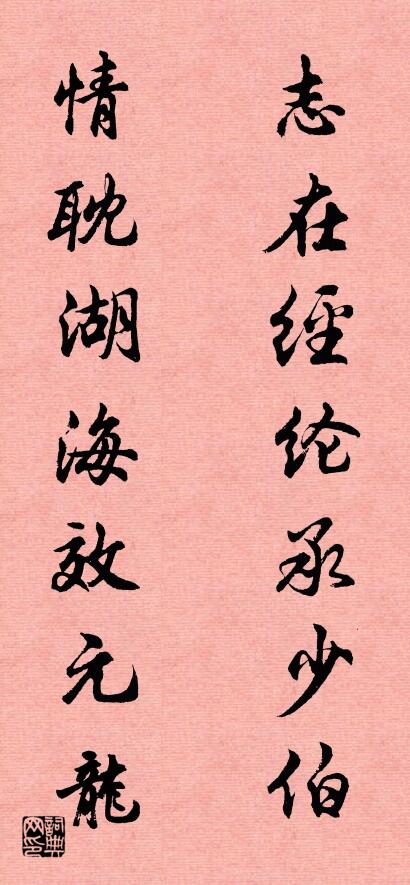 志在經纶承少伯
情耽湖海效元龍
詞典网印